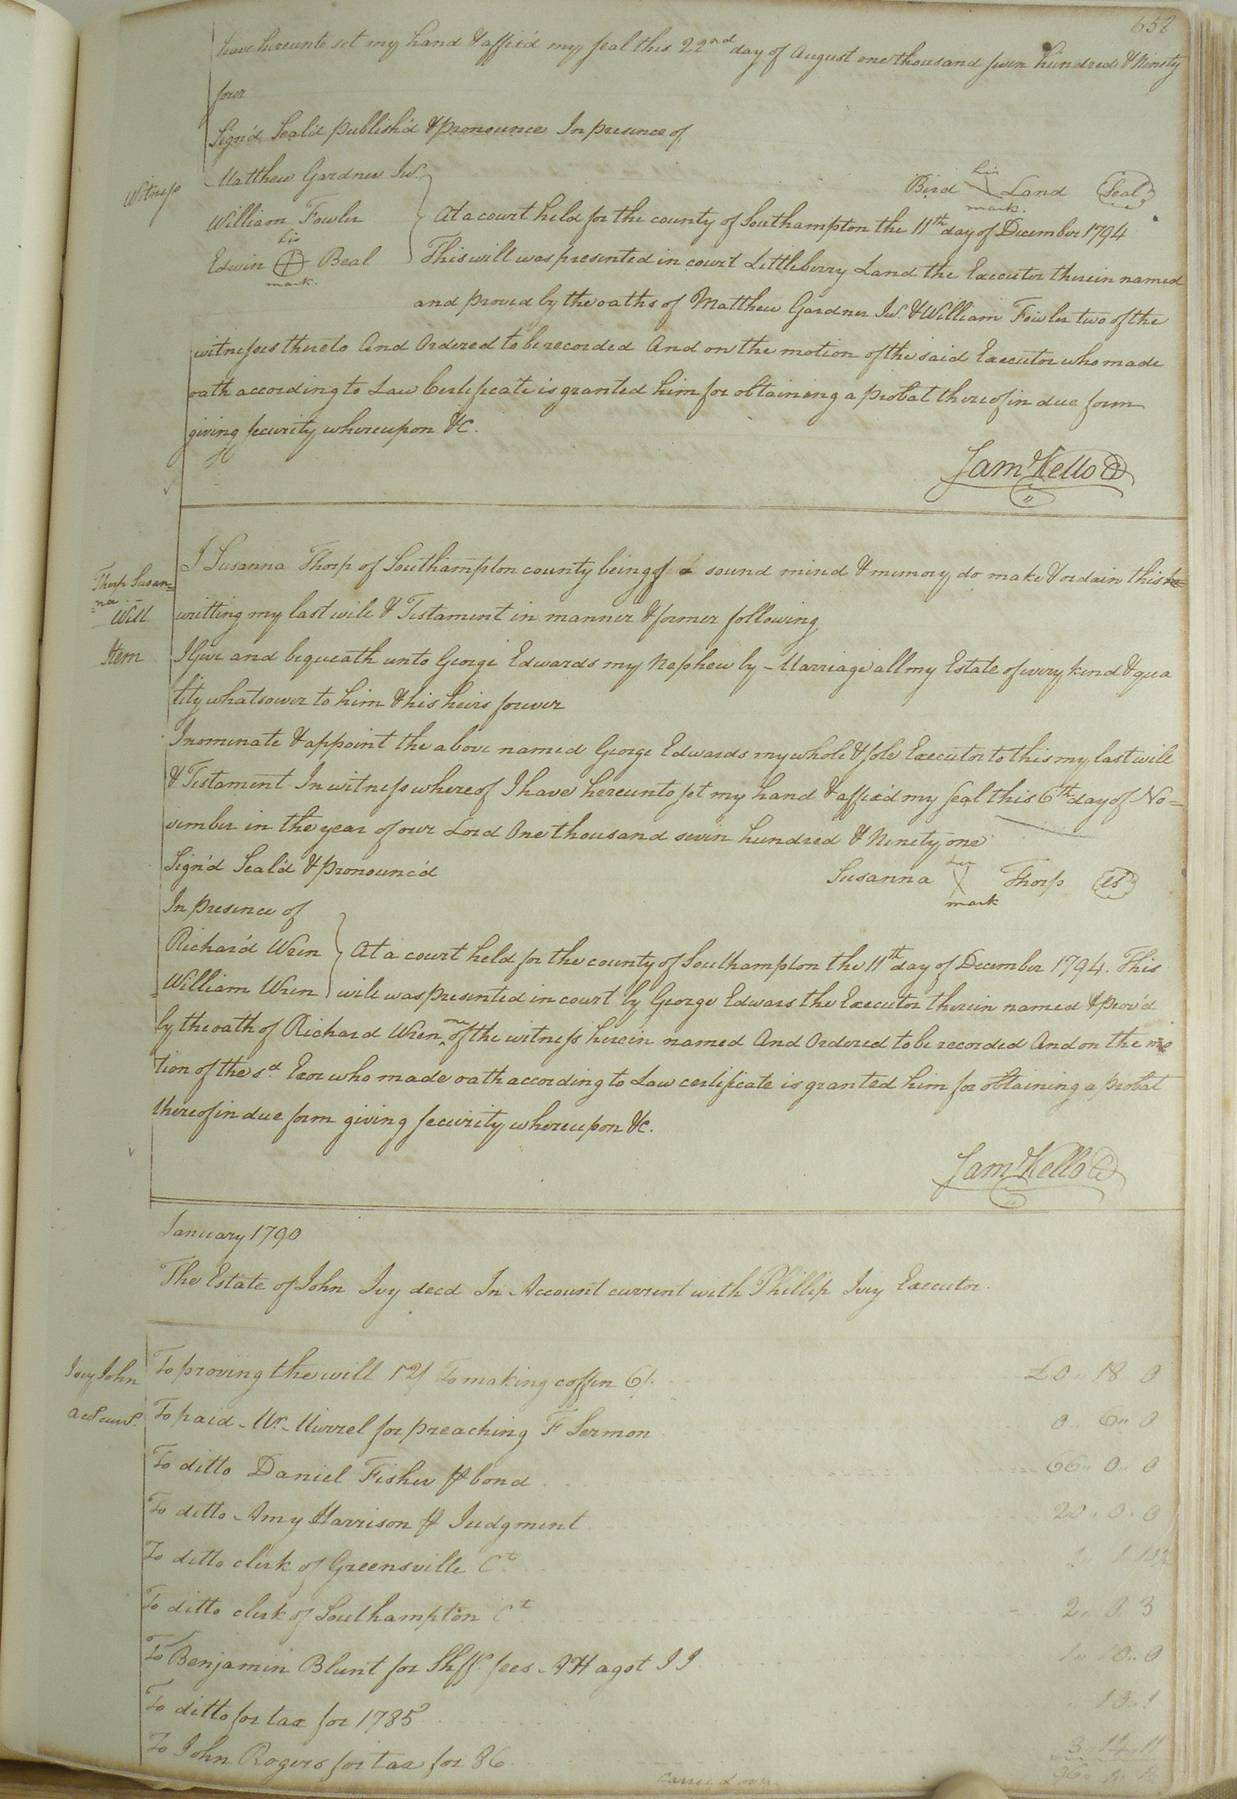 658
have hereunto set my hand & affix'd my seal this 22nd day of August one thousand seven hundred & Ninety
four
Sign'd Seal'd publish'd & pronounce In presence of
Witness
Matthew Gardner Jur.
his
Bird Land Seal
mark.
William Fowler
At a court held for the county of Southampton the 11th day of December 1794
his
Edwin Beal
mark.
This will was presented in court Littleberry Land the Executor therein named
and proved by the oaths of Matthew Gardner Jur. & William Fowler two of the
witnesses thereto And Ordered to be recorded And on the motion of the said Executor who made
oath according to Law Certificate is granted him for obtaining a probat thereof in due form
giving security whereupon &c.
Saml Kello
Thorp Susan=
=na
Will
I Susanna Thorp of Southampton county being of a sound mind & memory do make & ordain this
writting my last will & Testament in manner & former following
Item
I Give and bequeath unto George Edwards my Nephew by Marriage all my Estate of every kind & qua
lity whatsower to him & his heirs forever
I nominate & appoint the above named George Edwards my whole & sole Executor to this my last will
& Testament In witness whereof I have hereunto set my hand & affix'd my seal this 6th day of No=
vember in the year of our Lord One thousand sevin hundred & Ninety one
Sign'd Seal'd & pronounc'd
her
Susanna Thorp LS
mark
In presence of
Richar'd Wren
At a court held for the county of Southampton the 11th day of December 1794. This
William Wren
will was presented in court by George Edwars the Executor therein named & prov'd
by the oath of Richard Wren one of the witness herein named And Ordered to be recorded And on the mo
tion of the sd. Exor who made oath according to Law certificate is granted him for obtaining a probat
thereof in due form giving security whereupon &c.
Saml Kello
January 1790
The Estate of John Ivy decd In Account current with Phillip Ivy Executor.
Ivy John
To proving the will 12/ To making coffin 6/. £0.. 18 0
To paid Mr. Murrel for preaching F Sermon 0.. 6.. 0
To ditto Daniel Fisher bond 66.. 0.. 0
To ditto Amy Harrison Judgment 20.. 0.. 0
To ditto clerk of Greensville Ct
To ditto clerk of Southampton Ct 2.. 0. 3
To Benjamin Blunt for Shff fees AH agst JI 1.. 10.. 0
To ditto for tax for 1785
To John Rogers for tax for 86 3.. 14.. 11
carried over